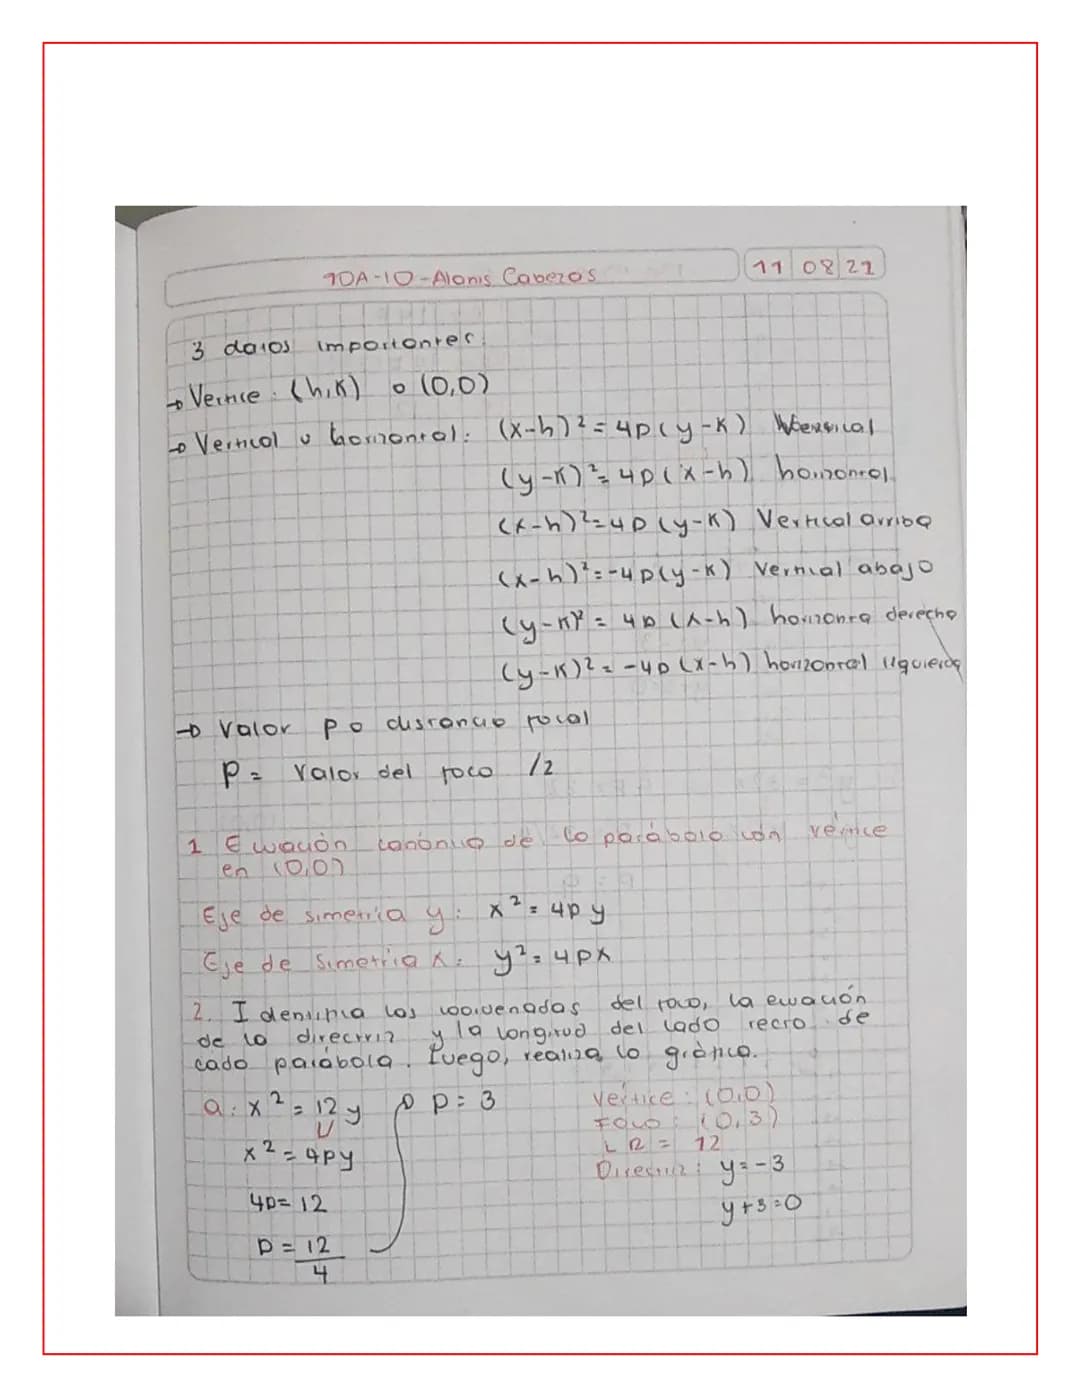 10A-10-Alanis Cabezas
11 08 21
3 datos importantes
→ Vertice: (h,K) o (0,0)
→ Vertical u horizontal: (x-h)²=4p(y-K) Vertical
(y-K)²=4p(x-h) horizontal
(x-h)²=4p(y-K) Vertical arriba
(x-h)²=-4p(y-K) Vertical abajo
(y-K)²=4p(x-h) horizonta derecha
(y-K)²=-4p(x-h) horizontal izquierda
→ Valor p o distancia focal
p= Valor del foco /2
1 Ecuación canónica de la parábola con vértice
en (0,0)
Eje de simetria y: x²=4py
Eje de Simetria x: y²=4px
2. Identifica las coordenadas del foco, la ecuación
de la directriz y la longitud del lado recto de
cada parábola. Luego, realiza la gráfica.
a: x²=12y p=3
x²=4py
4p=12
p=12/4
Vertice: (0,0)
Foco: (0,3)
LR= 12
Directriz: y=-3
y+3=0